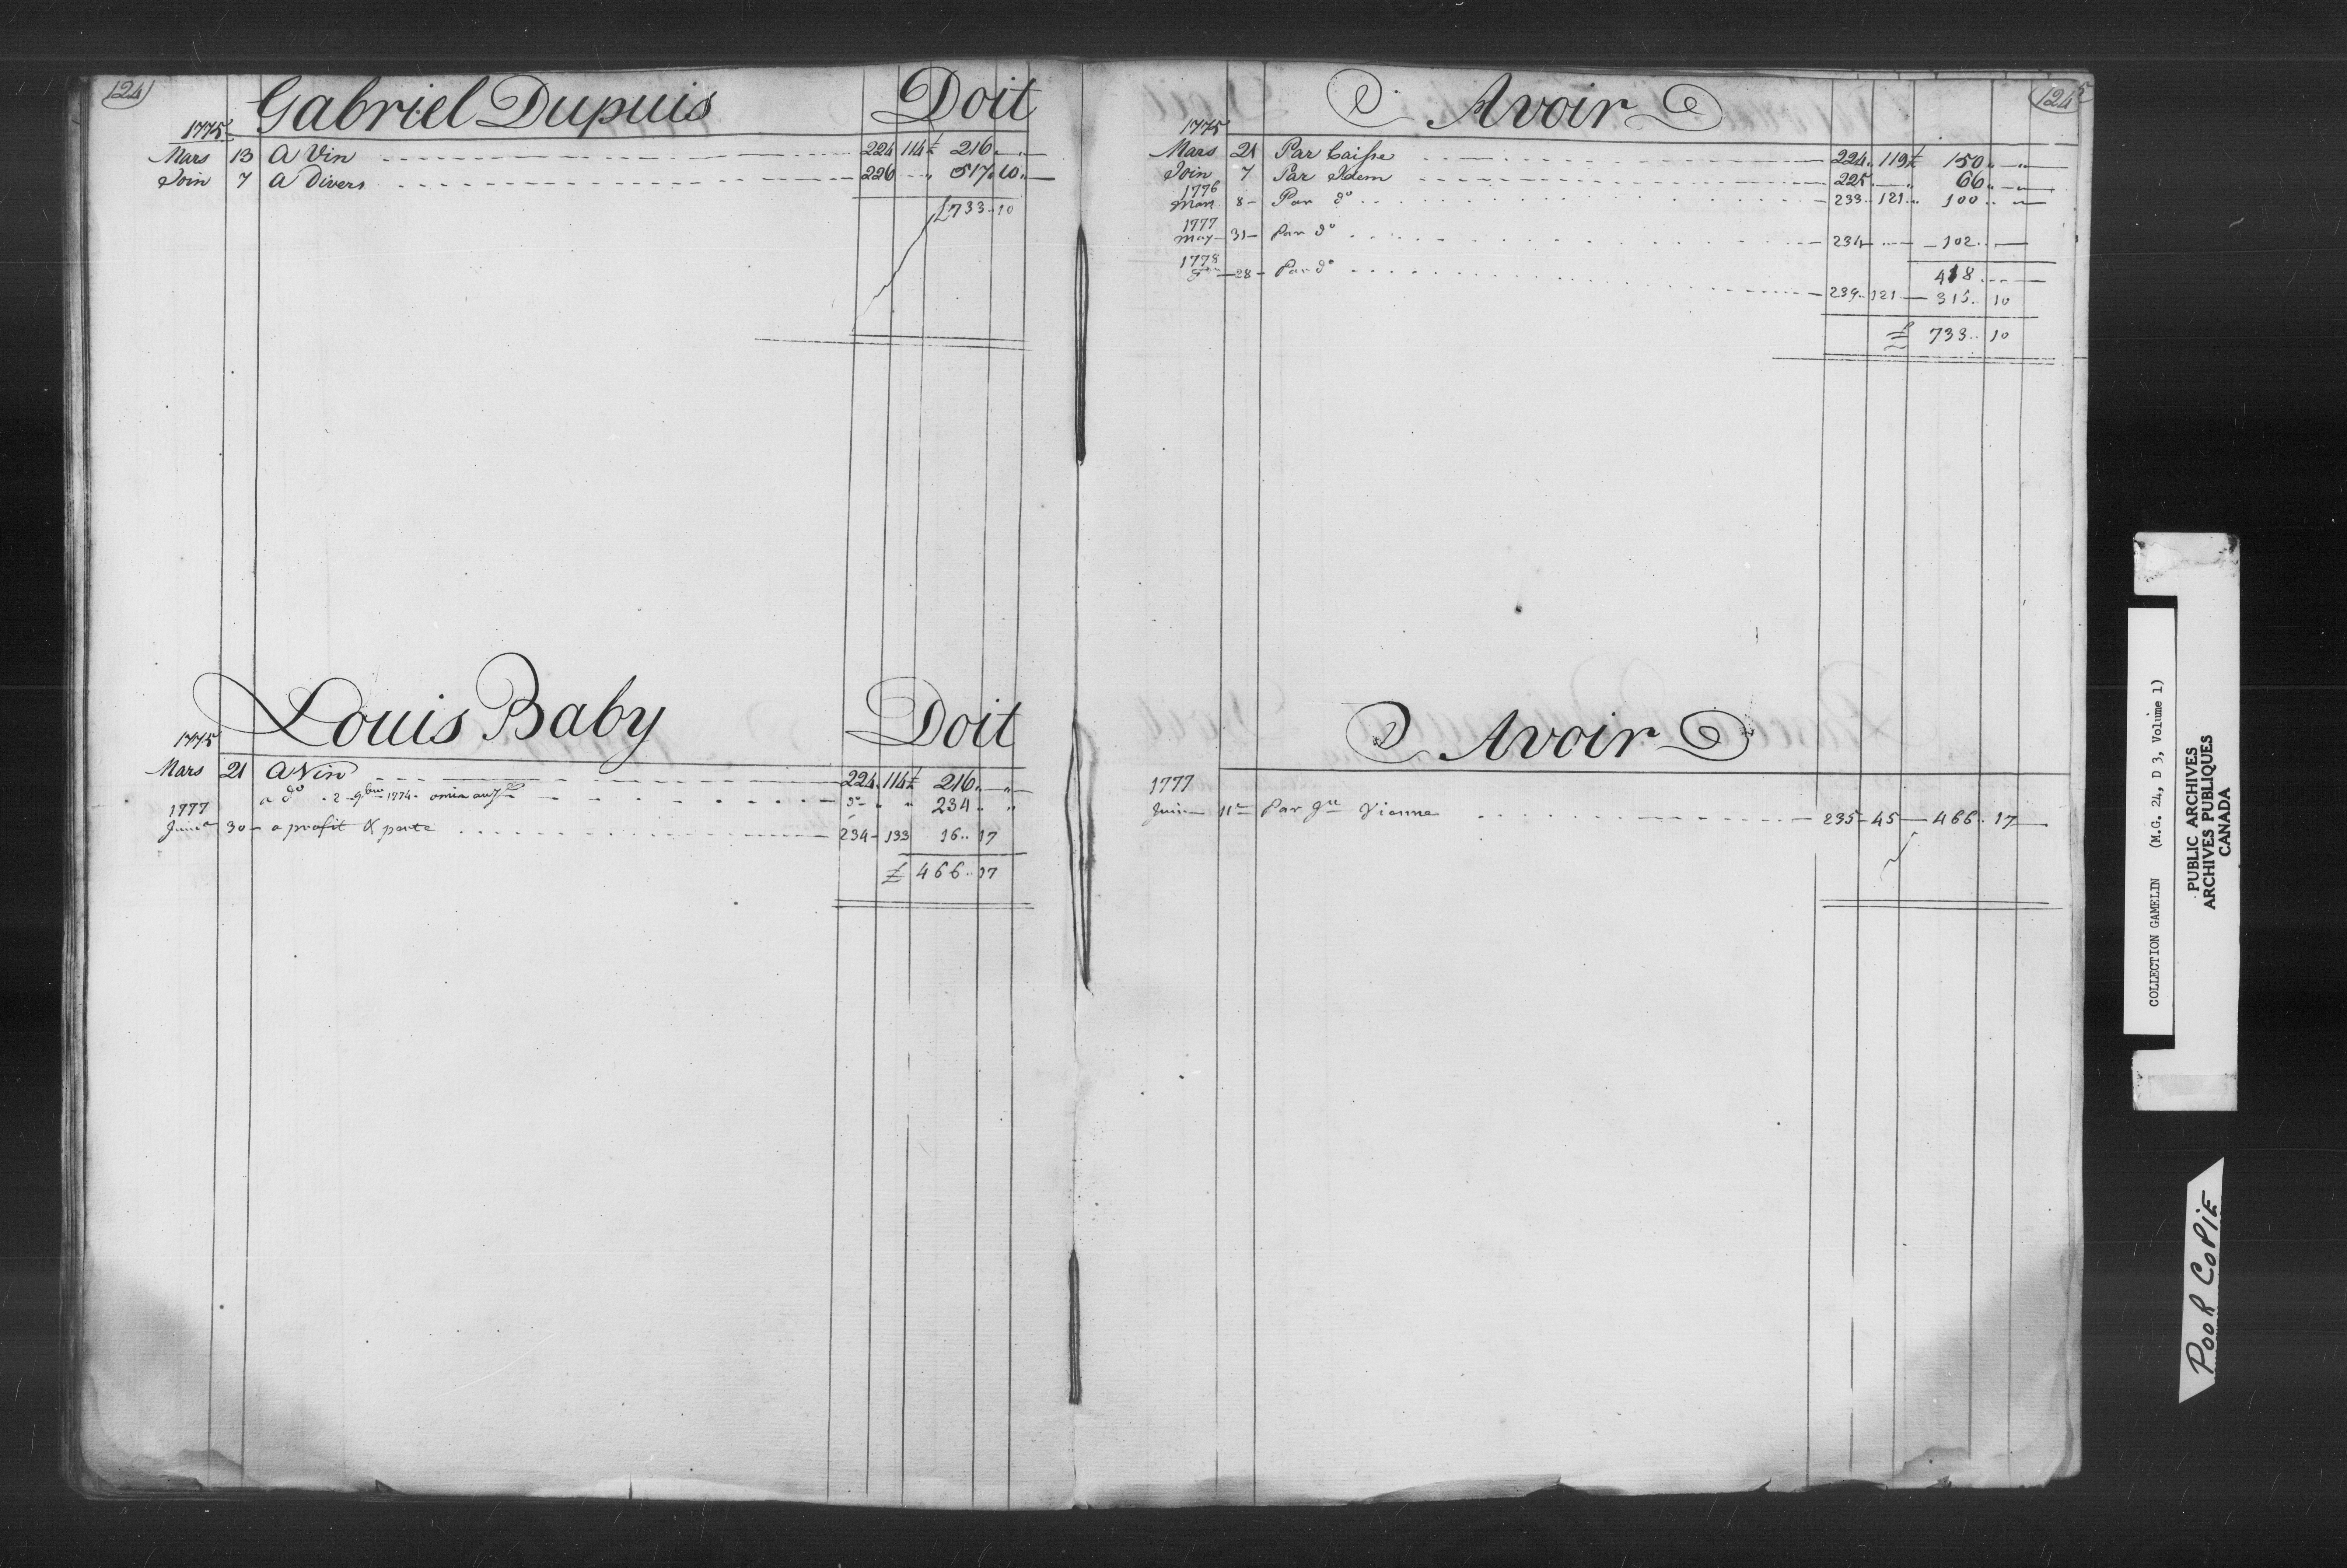 124
Gabriel Dupuis Doit
1775
Mars 13 A Vin 224 114 £ 216 " —
Join 7 A Divers 226 " 517 10 —
£ 733 " 10
Louis Baby Doit
1775
Mars 21 A Vin 224 114 £ 216 " —
a do 2 9bre 1774 omis au 234 "
1777
Juin 30 a profit & perte 234 133 16 " 17
£ 466 " 17
124
Avoir
1775
Mars 21 Par Caisse 224 119 £ 150 " —
Join 7 Par Idem 225 " 66 " —
1776
Mars 8 Par do 233 121 " 100 " —
1777
May 31 Par do 234 102 " —
1778
28 Par do
418 " —
239 121 315 " 10
£ 733 " 10
Avoir
1777
Juin 11 Par Vienne 235 45 466 " 17
COLLECTION GAMELIN (M.G. 24, D 3, Volume 1)
PUBLIC ARCHIVES
ARCHIVES PUBLIQUES
CANADA
POOR COPIE